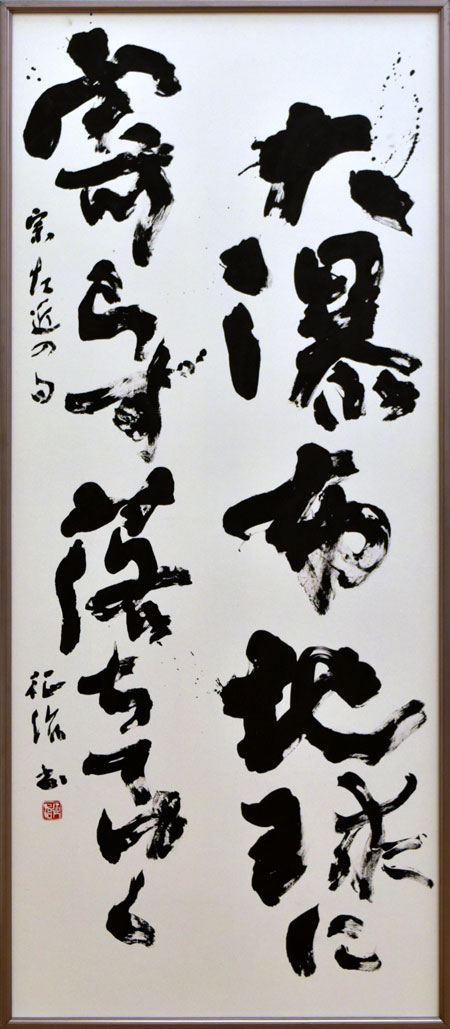 大瀑布地球に
寄らず落ちてゆく
宗左近の句
書